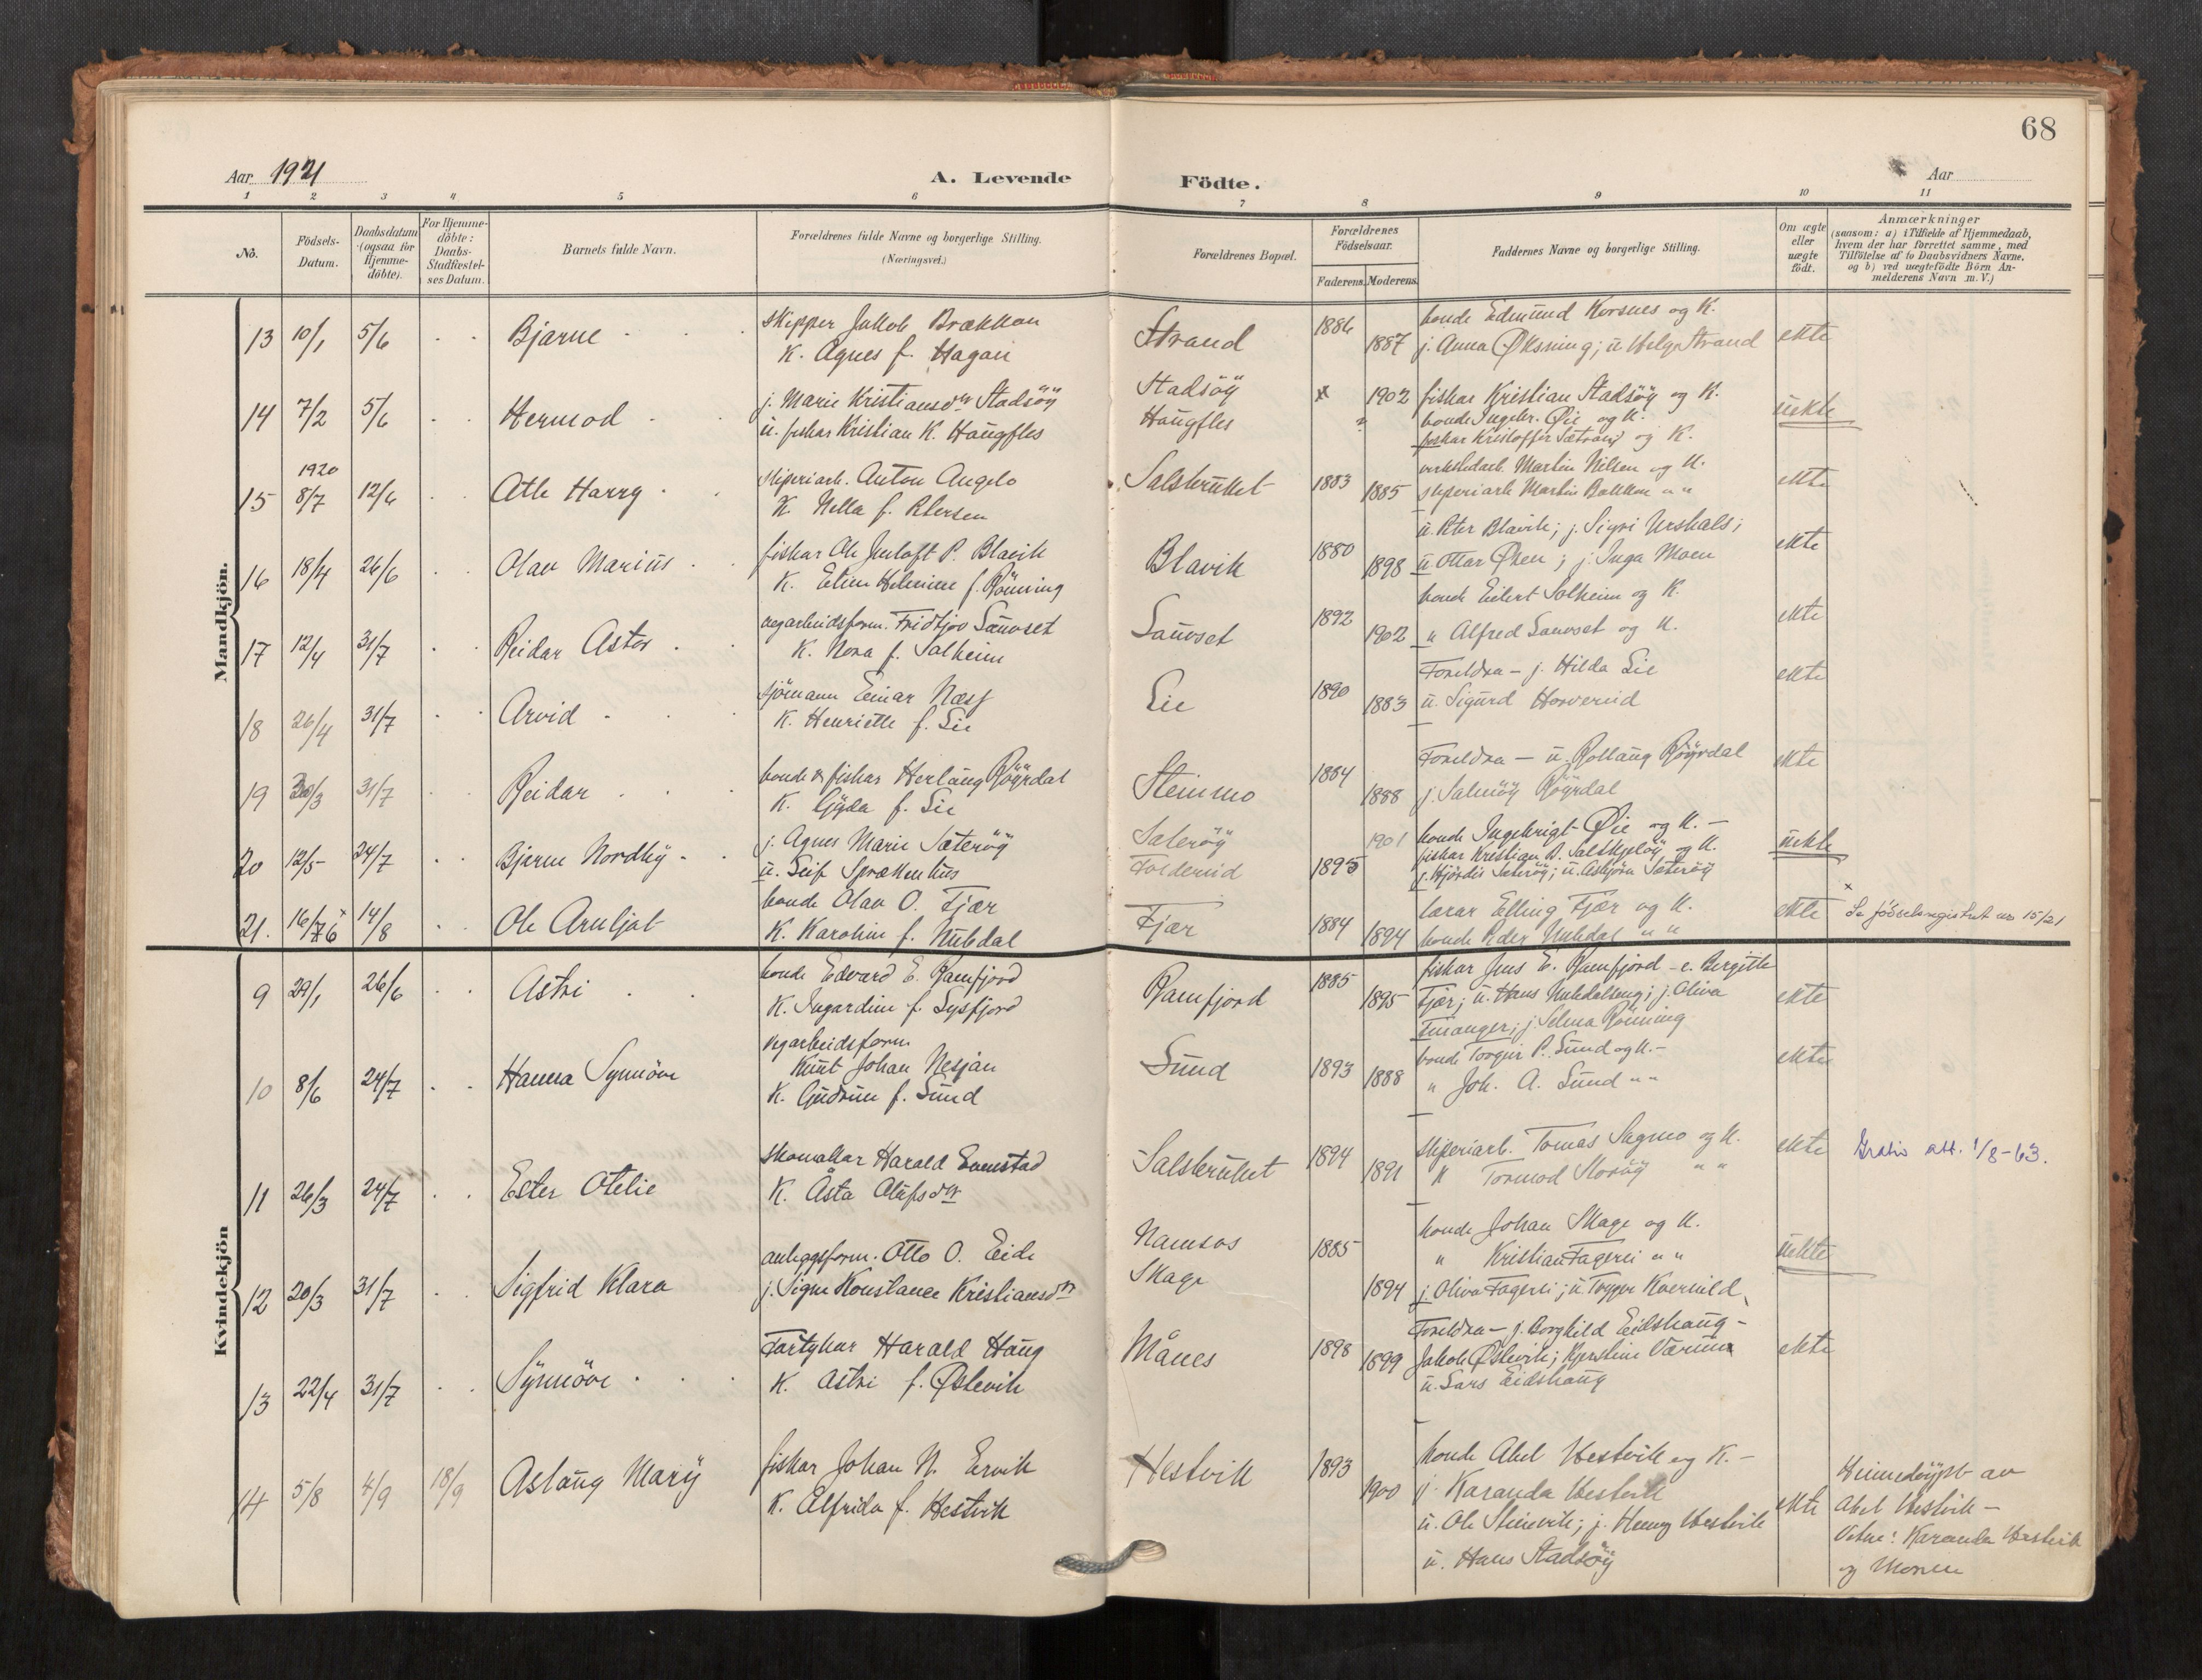 68
Aar 1921
A. Levende Födte.
Aar
1 2 3 4 5 6 7 8 9 10 11
No.
Födsels-
Datum.
Daabsdatum
(ogsaa for
Hjemme-
döbte).
For Hjemme-
döbte:
Daabs-
Stadfæstel-
ses Datum.
Barnets fulde Navn.
Forældrenes fulde Navne og borgerlige Stilling.
(Næringsvei.)
Forældrenes Bopæl.
Forældrenes
Födselsaar.
Faderens. Moderens.
Faddernes Navne og borgerlige Stilling.
Om ægte
eller
uægte
födt.
Anmærkninger
(saasom: a) i Tilfælde af Hjemmedaab,
hvem der har forrettet samme, med
Tilföielse af to Daabsvidners Navne,
og b) ved uægtefödte Börn An-
melderens Navn m. V.)
Mandkjön.
13 10/1 5/6 Bjarne
skipper Jakob Brækkan
K. Agnes f. Hagan
Strand 1886 1887
bonde Edmund Korsnes og K.
j. Anna Øksning; u Helge Strand
ekte
14 7/2 5/6 Hermod
j. Marie Kristiansdtr Stadsöy
u. fiskar Kristian K. Haugfles
Stadsöy
Haugfles
1902
fiskar Kristian Stadsöy og K.
bonde Ingebr. Øie og K.
fiskar Kristoffer Sætran og K.
uekte
1920
15 8/7 12/6 Atle Harry
sliperiarb. Anton Angelo
K. Nella f. Petersen
Salsbruket 1883 1885
verkstedarb. Martin Nilsen og K.
sliperiarb Martin Bakken " "
ekte
16 18/4 26/6 Olav Marius
fiskar Ole Jenloft P. Blavik
K. Eline Helmine f. Rönning
Blavik 1880 1898
u. Peter Blavik; j. Sigri Urshals;
u Ottar Øren; j. Inga Moen
ekte
17 12/4 31/7 Reidar Astor
vegarbeidsform. Fridtjov Saurset
K. Nora f. Salheim
Saurset 1892 1902
bonde Eilert Solheim og K.
" Alfred Saurset og K.
ekte
18 26/4 31/7 Arvid
sjömann Einar Næss
K. Henriette f. Lie
Lie 1890 1883
Foreldra - j. Hilda Lie
u. Sigurd Horvereid
ekte
19 30/3 31/7 Reidar
bonde & fiskar Herlaug Röyrdal
K. Gyda f. Lie
Steinmo 1884 1888
Foreldra - u. Rollaug Röyrdal
j. Salmöy Röyrdal
ekte
20 12/5 24/7 Bjarne Nordby
j. Agnes Marie Sæteröy
u. Leif Sprakenhus
Sateröy
Foldereid
1895 1901
bonde Ingebrigt Øie og K. -
fiskar Kristian P. Salskjelöy og K.
j. Hjördis Sæteröy; u. Asbjörn Sæteröy
uekte
21. 16/6 14/8 Ole Arnljot
bonde Olav O. Fjær
K. Karoline f. Nubdal
Fjær 1884 1894
lærar Elling Fjær og K.
bonde Peder Nubdal " "
ekte
Se födselsregistret nr 15/21
Kvindekjön
9 29/1 26/6 Astri
bonde Edvard E. Ramfjord
K. Ingardine f. Lysfjord
Ramfjord 1885 1895
fiskar Jens E. Ramfjord - e. Bergitte
Fjær; u. Hans Nubdalseng; j. Oliva
Finanger; j. Selma Rönning
ekte
10 8/6 24/7 Hanna Synnöve
vegarbeidsform.
Knut Johan Nesjan
K. Gudrun f. Sund
Sund 1893 1888
bonde Torgeir P. Sund og K. -
" Joh. A. Sund " "
ekte
11 26/3 24/7 Ester Otelie
skomakar Harald Evenstad
K. Åsta Olufsdtr
Salsbruket 1894 1891
sliperiarb. Tomas Sagmo og K.
" Tormod Storöy " "
ekte
Gratis att. 1/8-63.
12 20/3 31/7 Sigfrid Klara
anleggsform. Otto O. Eide
j. Signe Konstance Kristiansdtr
Namsos
Skage
1885 1894
bonde Johan Skage og K.
" Kristian Fagerli " "
j. Oliva Fagerli; u. Trygve Kvereld
uekte
13 22/4 31/7 Synnöve
Farty Harald Haug
K. Astri f. Østevik
Månes 1898 1899
Foreldra - j. Borghild Eidshaug -
Jakob Østevik; Kjerstine Værum
u. Lars Eidshaug
ekte
14 5/8 4/9 18/9 Aslaug Mary
fiskar Johan N. Ervik
K. Alfrida f. Hestvik
Hestvik 1893 1900
bonde Abel Hestvik og K. -
j. Karanda Hestvik
u. Ole Steinvik; j. Henny Hestvik
u. Hans Stadsöy
ekte
Heimedöypt av
Abel Hestvik -
Vitne: Karanda Hestvik
og Moren